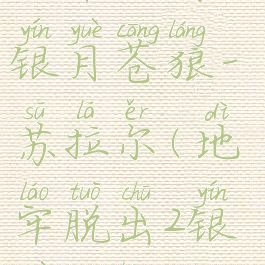 yín yuè cāng láng
银月苍狼-
sū lā ěr dì
苏拉尔(地
láo tuō chū yín
牢脱出2银